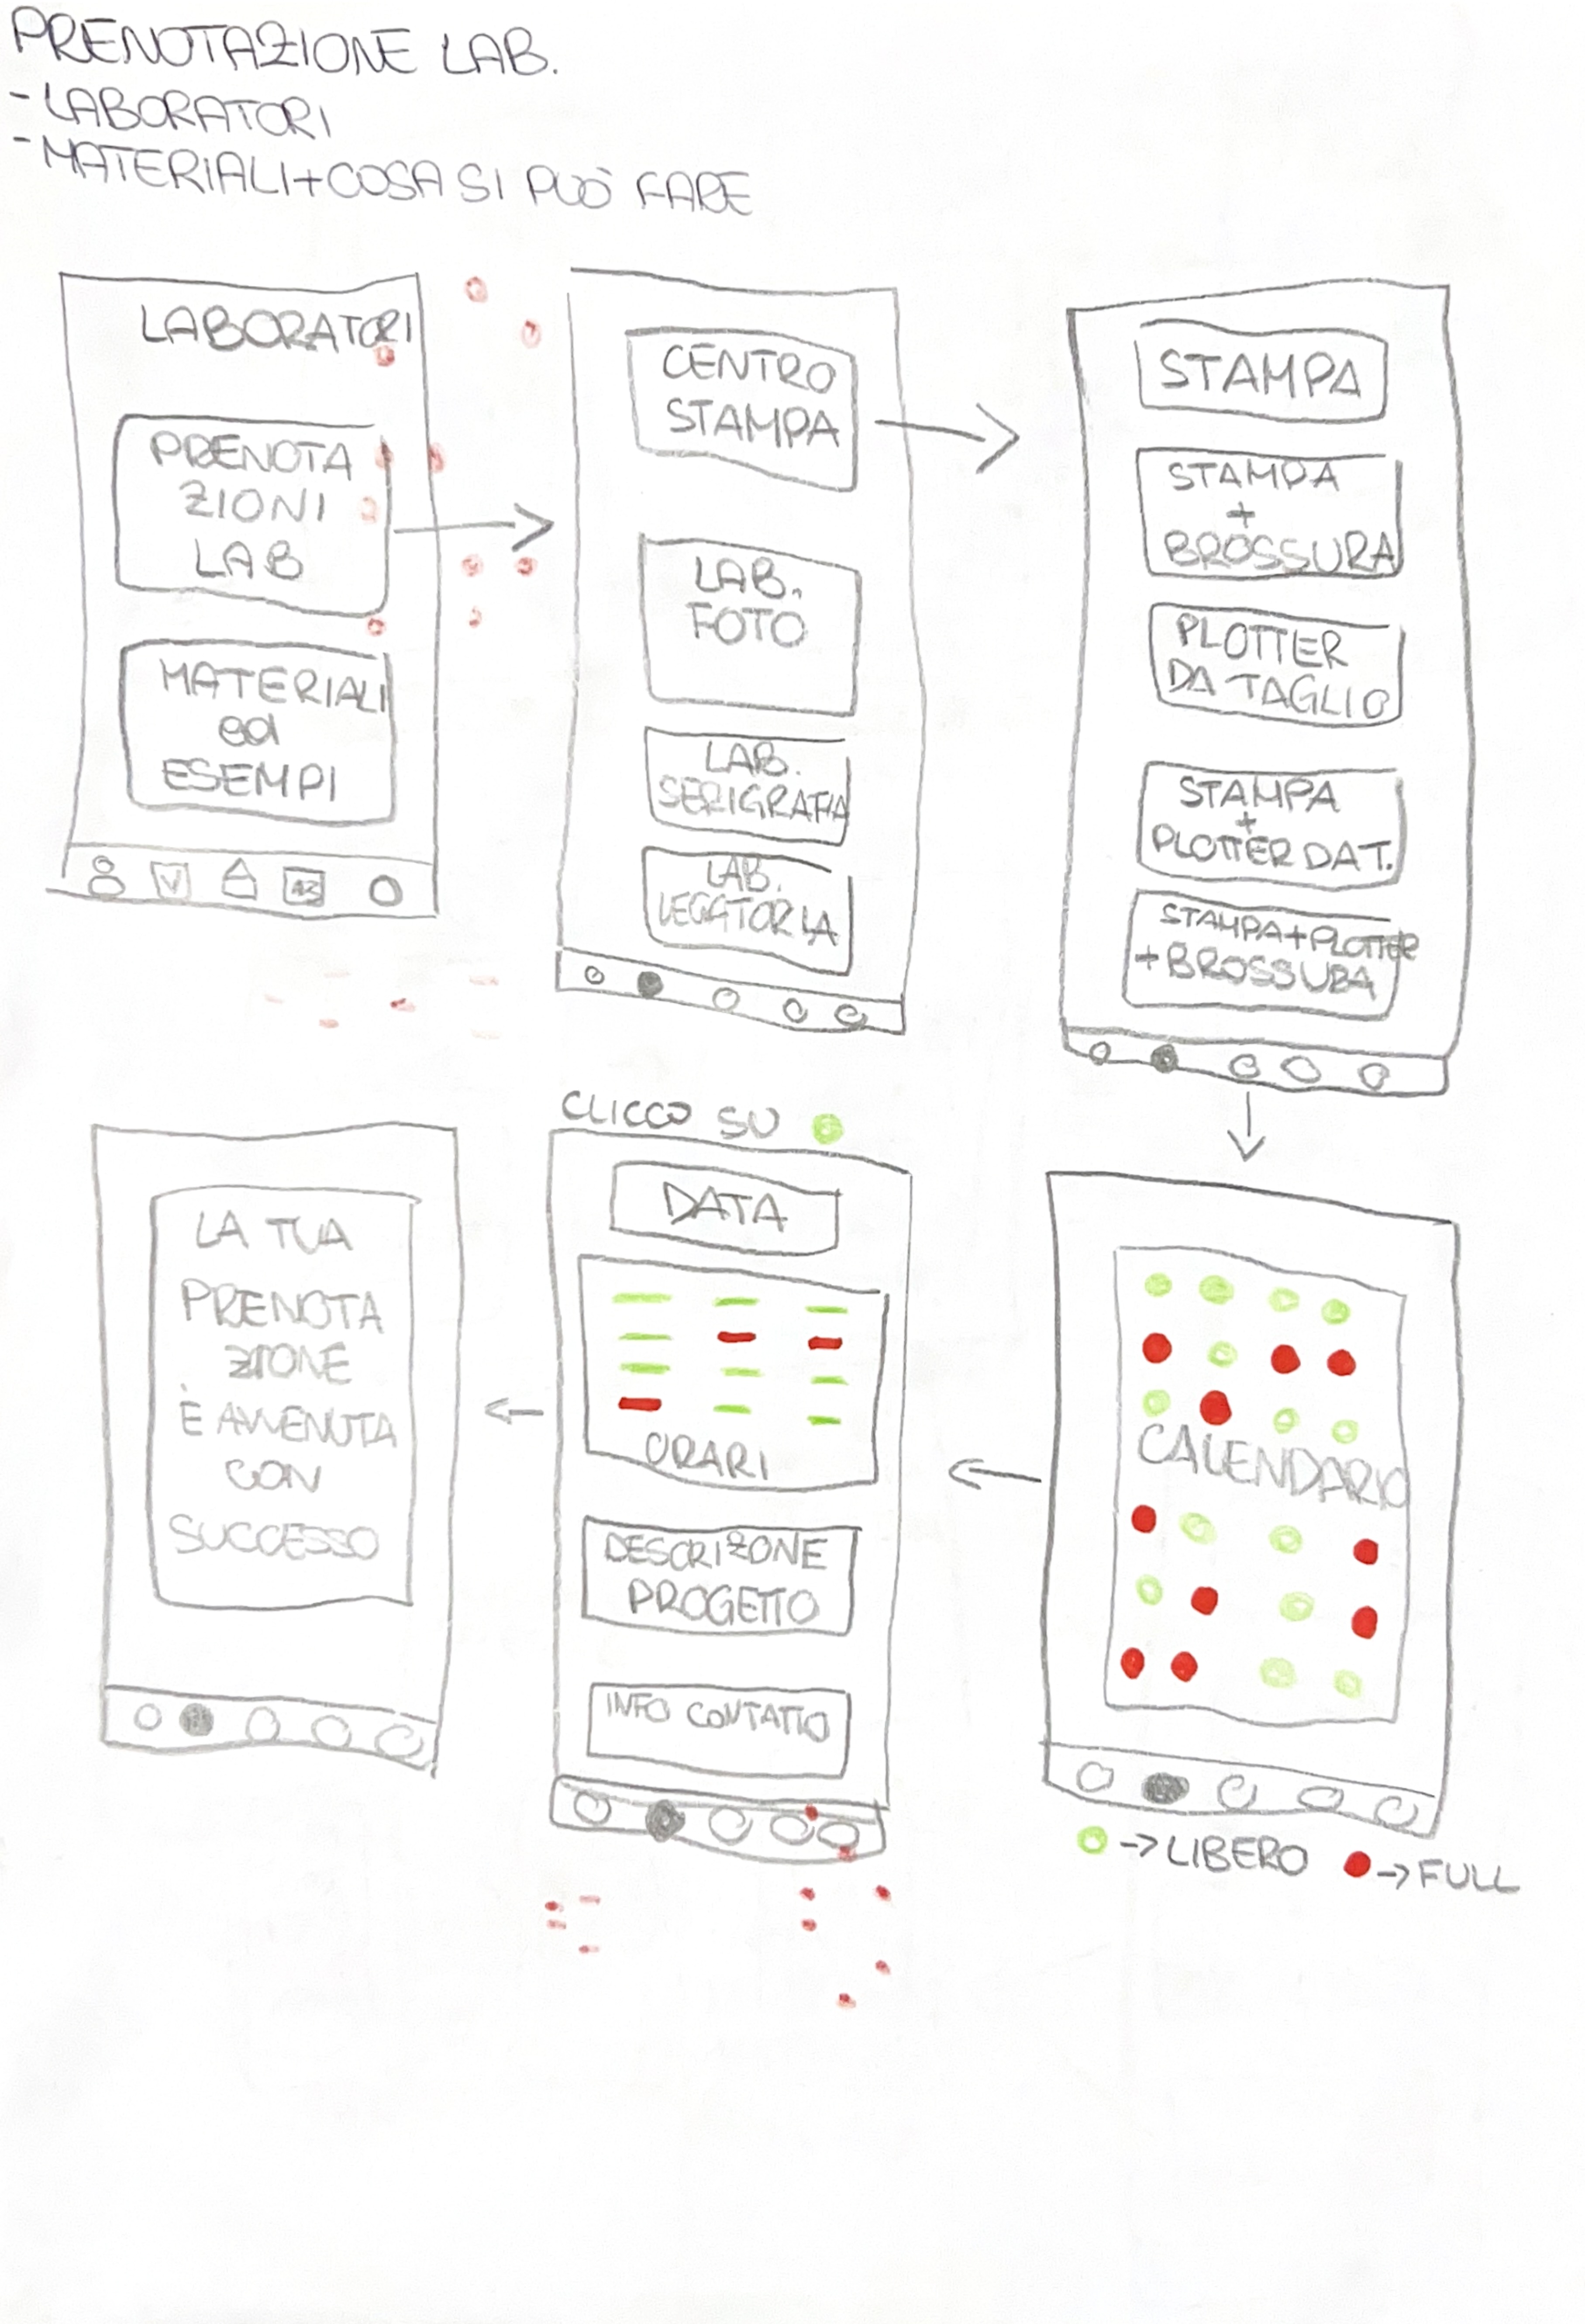 PRENOTAZIONE LAB.
- LABORATORI
- MATERIALI+COSA SI PUÒ FARE
LABORATORI
PRENOTA
ZIONI
LAB
MATERIALI
ed
ESEMPI
CENTRO
STAMPA
LAB.
FOTO
LAB.
SERIGRAFIA
LAB.
LEGATORIA
STAMPA
STAMPA
+
BROSSURA
PLOTTER
DA TAGLIO
STAMPA
+
PLOTTER DA T.
STAMPA+PLOTTER
+BROSSURA
CALENDARIO
→LIBERO
→FULL
CLICCO SU
DATA
ORARI
DESCRIZONE
PROGETTO
INFO CONTATTO
LA TUA
PRENOTA
ZIONE
È AVVENUTA
CON
SUCCESSO